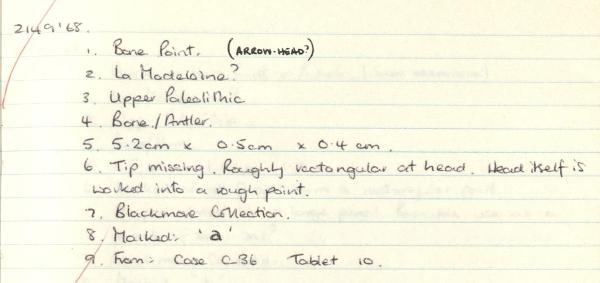 2149'68.
1. Bone Point. (ARROW-HEAD?)
2. La Madelaine?
3. Upper Paleolithic
4. Bone/Antler.
5. 5.2cm x 0.5cm x 0.4 cm.
6. Tip missing. Roughly rectangular at head. Head itself is
worked into a rough point.
7. Blackmore Collection.
8. Marked: 'a'
9. From: Case C36 Tablet 10.